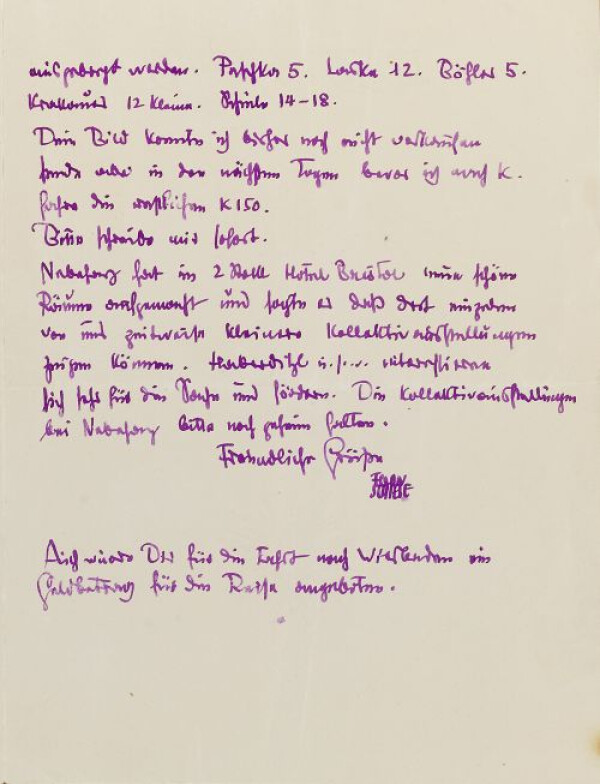 ausgeborgt werden. Paschka 5. Laske 12. Böhler 5.
Krakauer 12 kleine. Schiele 14-18.
Dein Bild konnte ich bisher noch nicht verkaufen
sende aber in den nächsten Tagen bevor ich nach K.
fahre die restlichen K 150.
Bitte schreibe mir sofort.
Nebehay hat im 2 Stock Hotel Bristol neue schöne
Räume und sagte er daß dort
von uns zeitweise kleinere Kollektivausstellungen
zeigen können. Haberditzl u.s.w. interessieren
sich sehr für die Sache und fördern. Die Kollektivausstellungen
bei Nebehay bitte noch geheim halten.
Freundliche Grüße
Auch wurde Dir für die Fahrt nach Wiesbaden ein
Geldbetrag für die Reise angeboten.